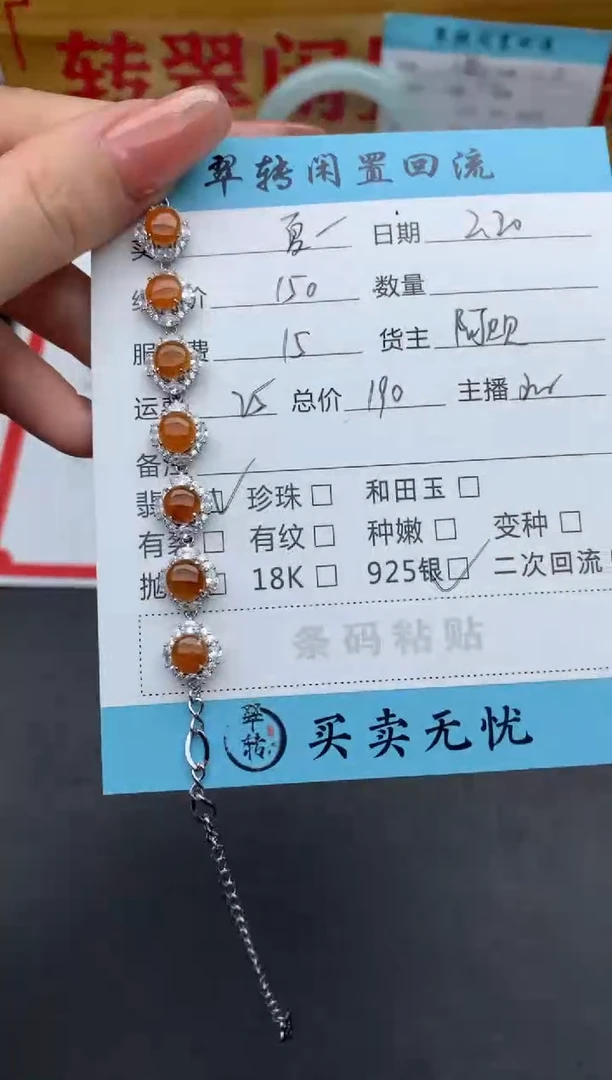 转翠闲
翠转闲置回流
夏一 日期 2.20
价 150 数量
服 费 15 货主 阿贝
运 25 总价 190 主播
备注
翡 珍珠 □ 和田玉 □
有 □ 有纹 □ 种嫩 □ 变种 □
抛 □ 18K □ 925银 □ 二次回流
条码粘贴
翠转 买卖无忧